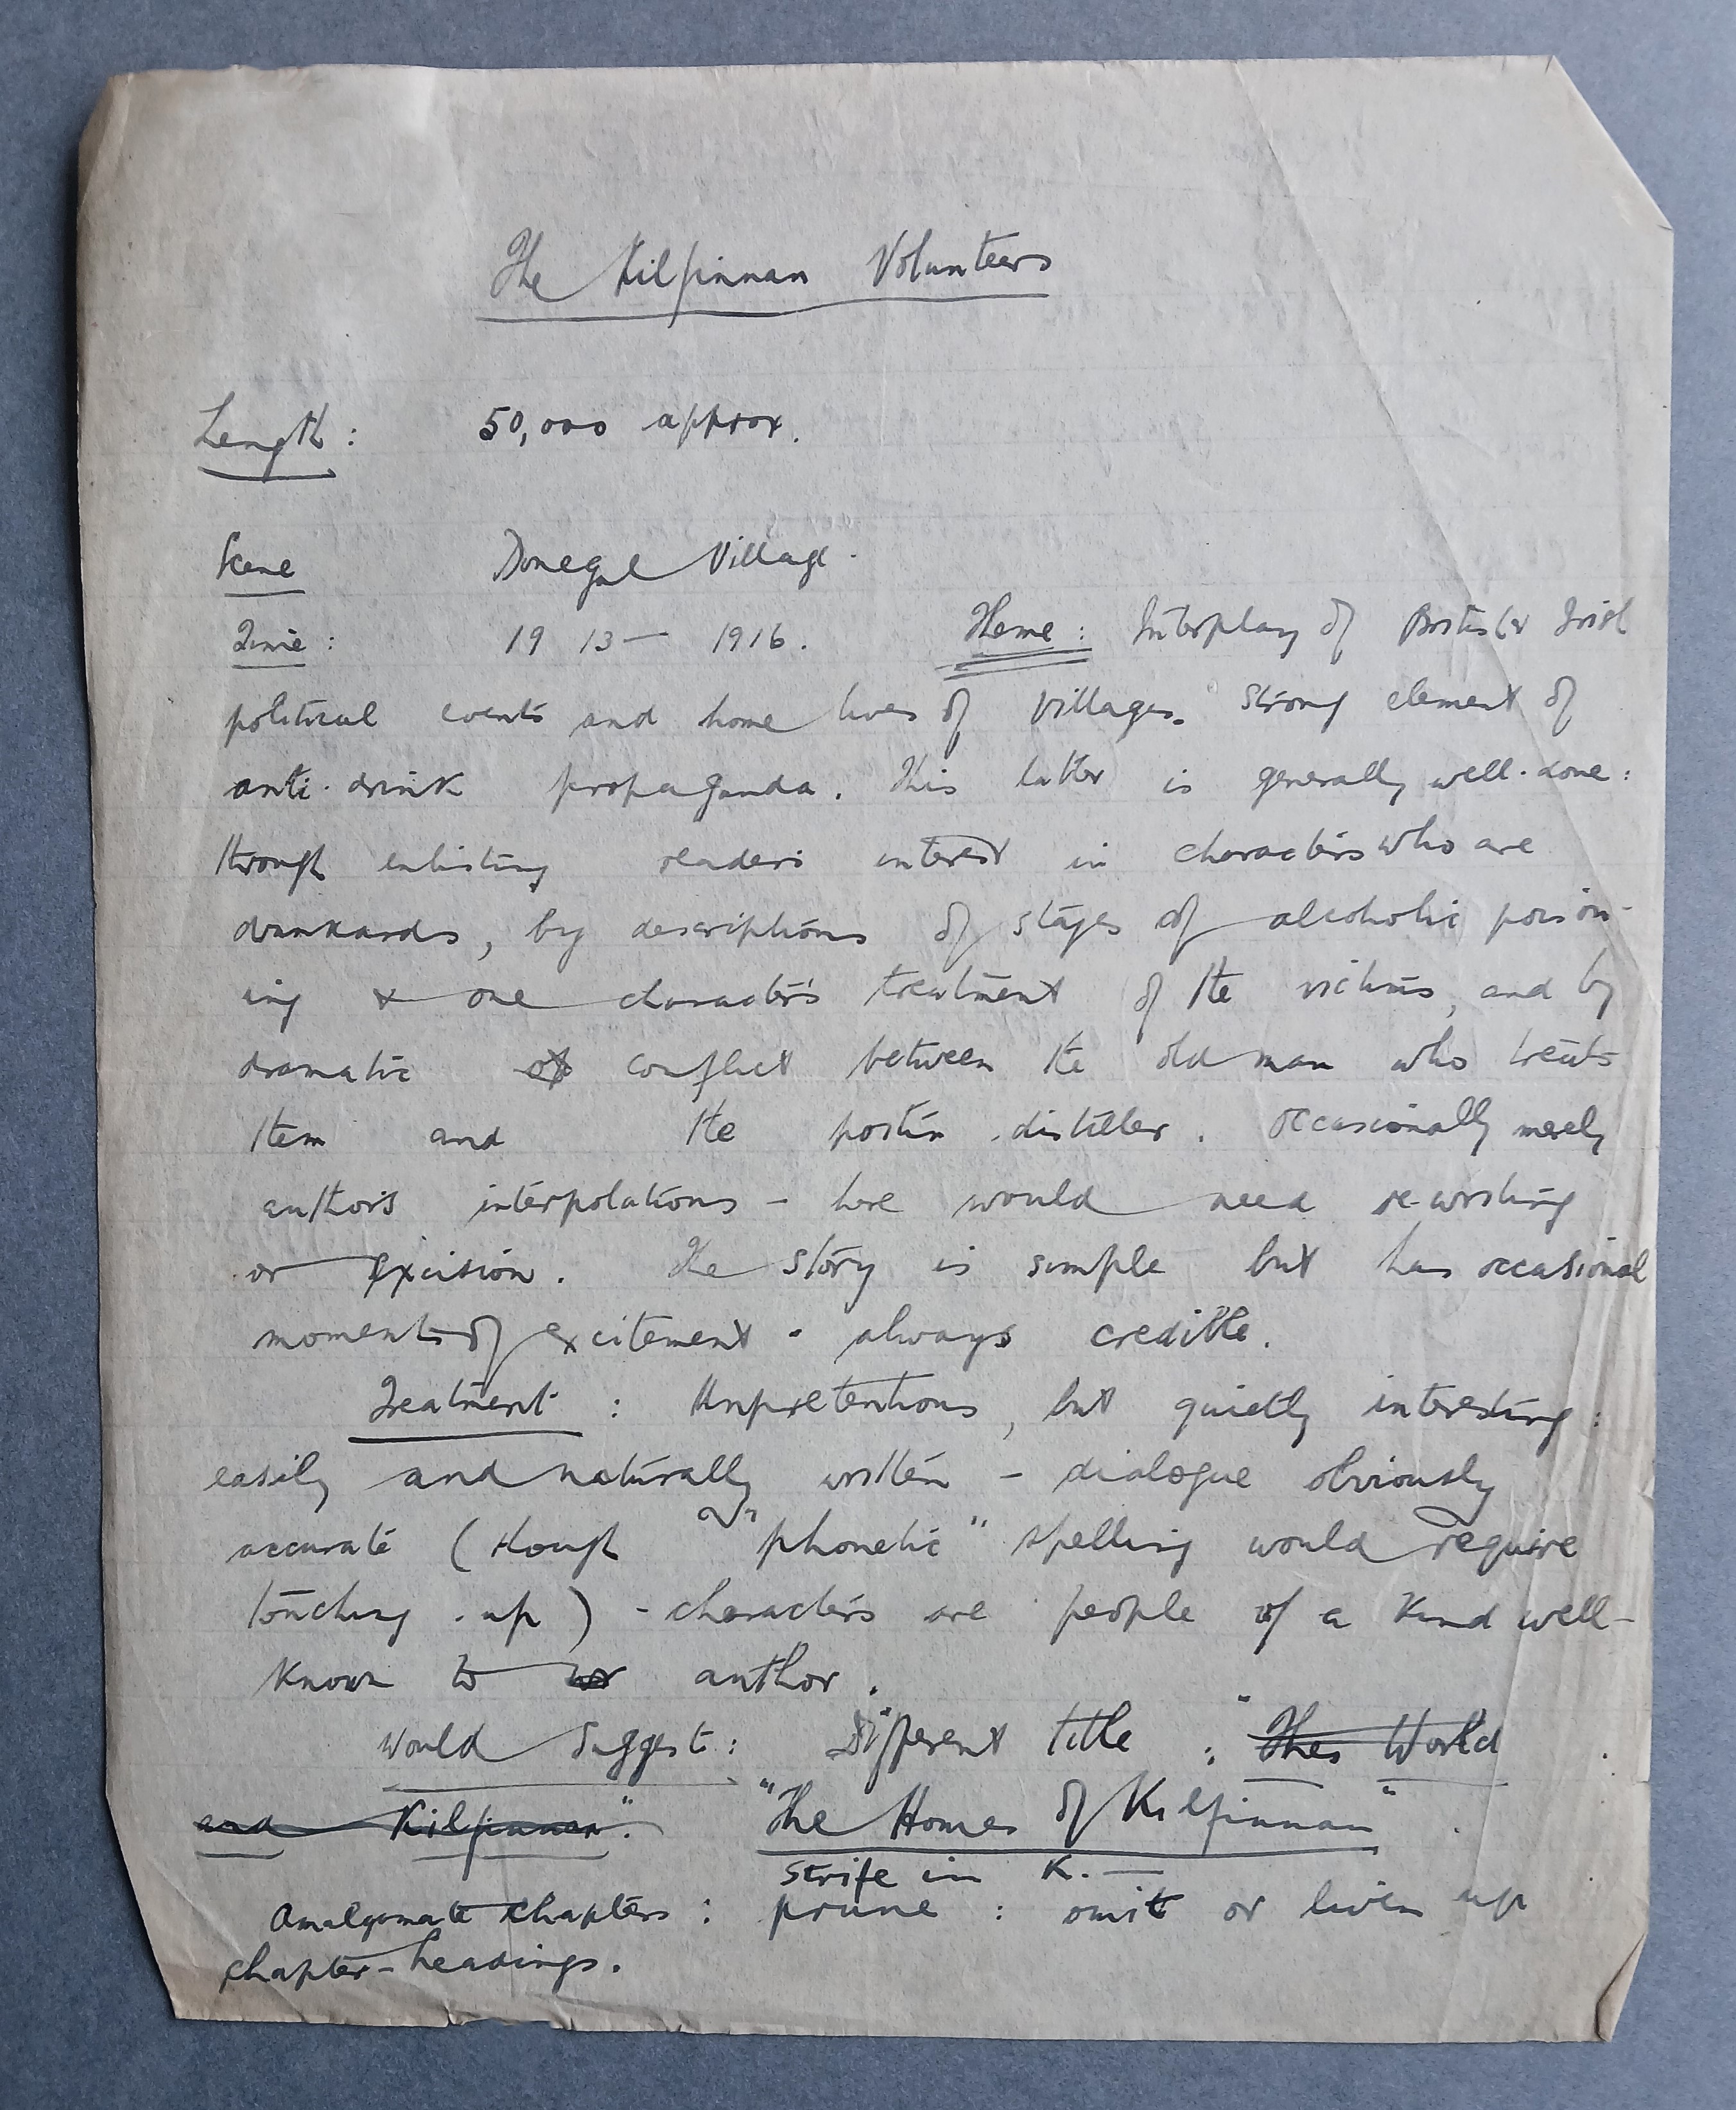 The Kilpinnan Volunteers
Length: 50,000 approx.
Scene Donegal Village.
Time: 1913 — 1916. Theme: Interplay of British & Irish
political events and home lives of villages. Strong element of
anti-drink propaganda. This latter is generally well-done:
through enlisting readers interest in characters who are
drunkards, by descriptions of stages of alcoholic poison-
ing & one character's treatment of the victims, and by
dramatic of conflict between the old man who treats
them and the potín distiller. Occasionally merely
author's interpolations - here would need re-writing
or excision. The story is simple but has occasional
moments of excitement - always credible.
Treatment: Unpretentious, but quietly interesting:
easily and naturally written - dialogue obviously
accurate (though "phonetic" spelling would require
touching-up) - characters are people of a kind well-
known to author.
Would Suggest: Different title: "The World
and Kilpinnan". "The Homes of Kilpinnan".
Strife in K. —
Amalgamate chapters: prune: omit or liven up
chapter-headings.